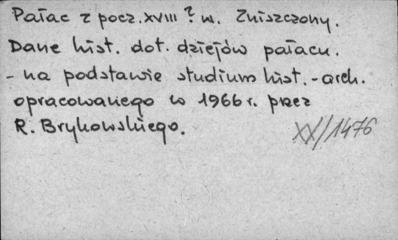 Pałac z pocz. XVIII ? w. Zniszczony.
Dane hist. dot. dziejów pałacu.
- na podstawie studium hist.-arch.
opracowanego w 1966 r. przez
R. Brykowskiego.
XX/1476